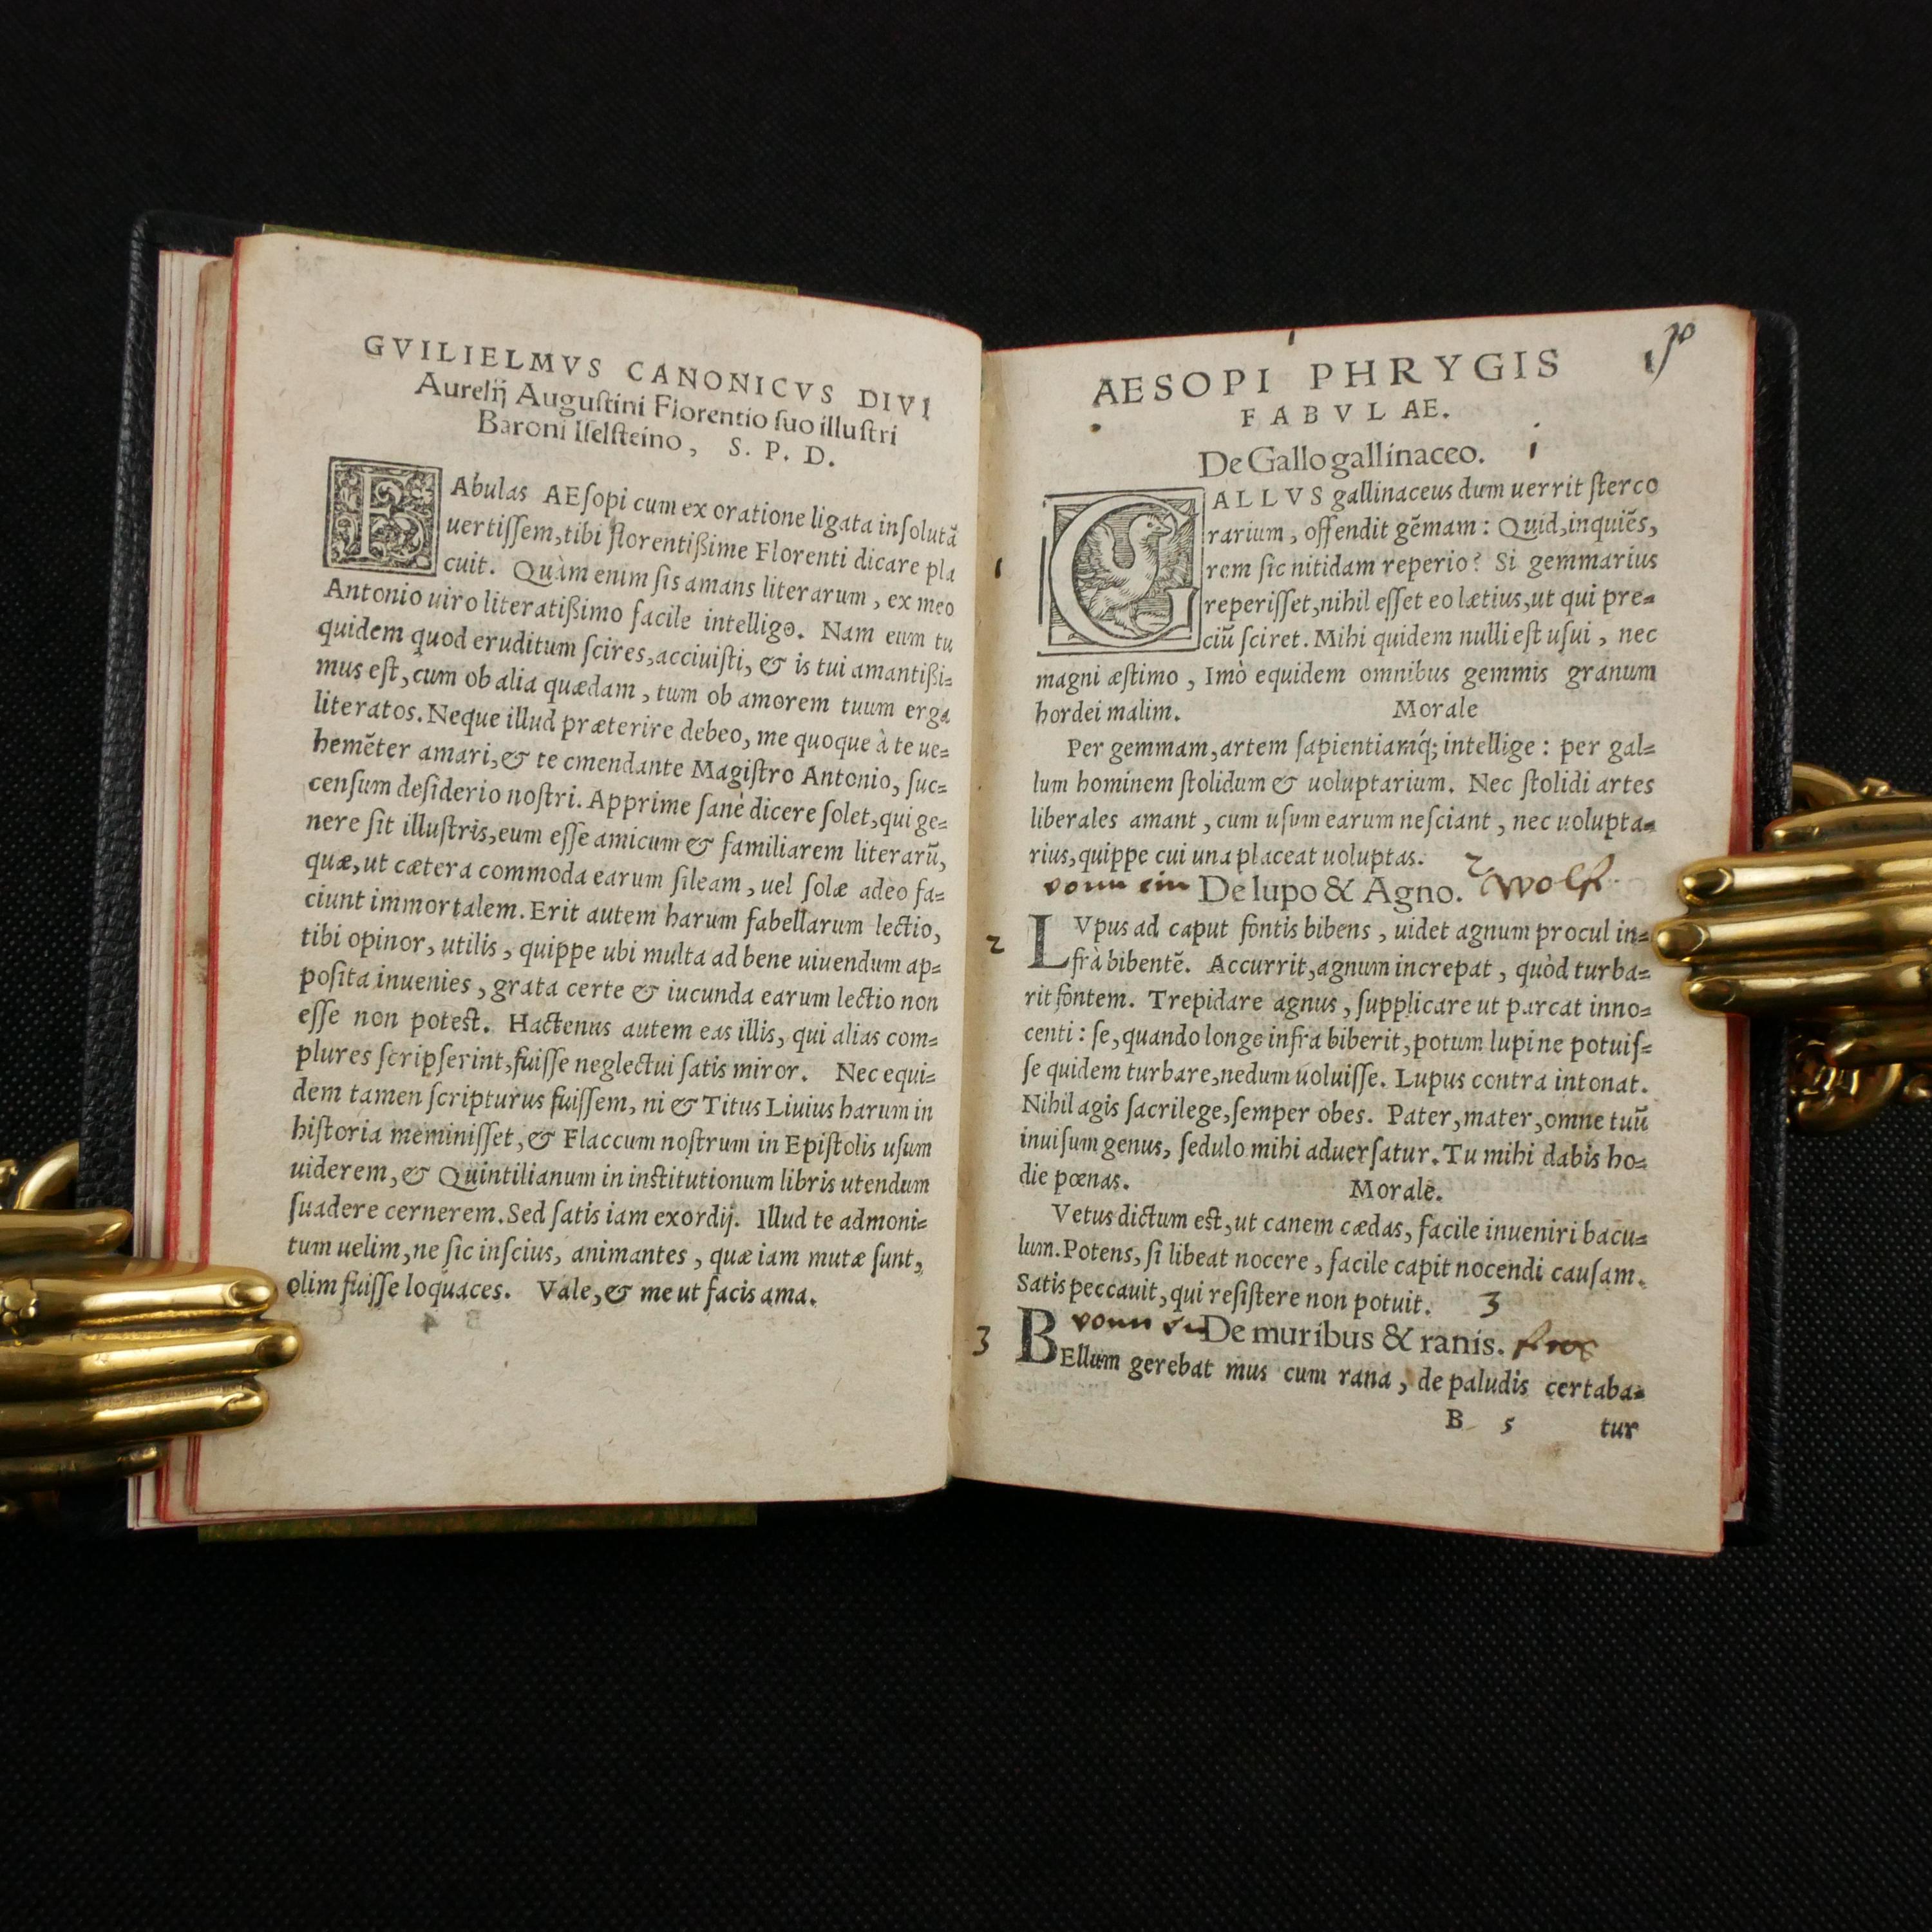 GVILIELMVS CANONICVS DIVI
Aurelij Auguſtini Florentio ſuo illuſtri
Baroni Iſelſteino, S. P. D.
FAbulas AEſopi cum ex oratione ligata in ſolutā
uertiſſem, tibi florentiſſime Florenti dicare pla
cuit. Quàm enim ſis amans literarum, ex meo
Antonio uiro literatiſſimo facile intelligo. Nam eum tu
quidem quod eruditum ſcires, acciuiſti, & is tui amantiſſi=
mus eſt, cum ob alia quædam, tum ob amorem tuum erga
literatos. Neque illud præterire debeo, me quoque à te ue=
hemēter amari, & te cmendante Magiſtro Antonio, ſuc=
cenſum deſiderio noſtri. Apprime ſanè dicere ſolet, qui ge=
nere ſit illuſtris, eum eſſe amicum & familiarem literarū,
quæ, ut cætera commoda earum ſileam, uel ſolæ adeo fa=
ciunt immortalem. Erit autem harum fabellarum lectio,
tibi opinor, utilis, quippe ubi multa ad bene uiuendum ap=
poſita inuenies, grata certe & iucunda earum lectio non
eſſe non poteſt. Hactenus autem eas illis, qui alias com=
plures ſcripſerint, fuiſſe neglectui ſatis miror. Nec equi=
dem tamen ſcripturus fuiſſem, ni & Titus Liuius harum in
hiſtoria meminiſſet, & Flaccum noſtrum in Epiſtolis uſum
uiderem, & Quintilianum in inſtitutionum libris utendum
ſuadere cernerem. Sed ſatis iam exordij. Illud te admoni=
tum uelim, ne ſic inſcius, animantes, quæ iam mutæ ſunt,
olim fuiſſe loquaces. Vale, & me ut facis ama.
AESOPI PHRYGIS
FABVLAE.
De Gallo gallinaceo. 1
1 GALLVS gallinaceus dum uerrit ſterco
rarium, offendit gēmam: Quid, inquiēs,
rem ſic nitidam reperio? Si gemmarius
reperiſſet, nihil eſſet eo lætius, ut qui pre=
ciū ſciret. Mihi quidem nulli eſt uſui, nec
magni æſtimo, Imò equidem omnibus gemmis granum
hordei malim. Morale
Per gemmam, artem ſapientiamq́;intellige: per gal=
lum hominem ſtolidum & uoluptarium. Nec ſtolidi artes
liberales amant, cum uſum earum neſciant, nec uolupta=
rius, quippe cui una placeat uoluptas.
vonn ein De lupo & Agno. 2 Wolf
2 LVpus ad caput fontis bibens, uidet agnum procul in=
frà bibentē. Accurrit, agnum increpat, quòd turba=
rit fontem. Trepidare agnus, ſupplicare ut parcat inno=
centi: ſe, quando longe infra biberit, potum lupi ne potuiſ=
ſe quidem turbare, nedum uoluiſſe. Lupus contra intonat.
Nihil agis ſacrilege, ſemper obes. Pater, mater, omne tuū
inuiſum genus, ſedulo mihi aduerſatur. Tu mihi dabis ho=
die pœnas. Morale.
Vetus dictum eſt, ut canem cædas, facile inueniri bacu=
lum. Potens, ſi libeat nocere, facile capit nocendi cauſam.
Satis peccauit, qui reſiſtere non potuit. 3
vonn De muribus & ranis.
3 BEllum gerebat mus cum rana, de paludis certaba=
B 5 tur